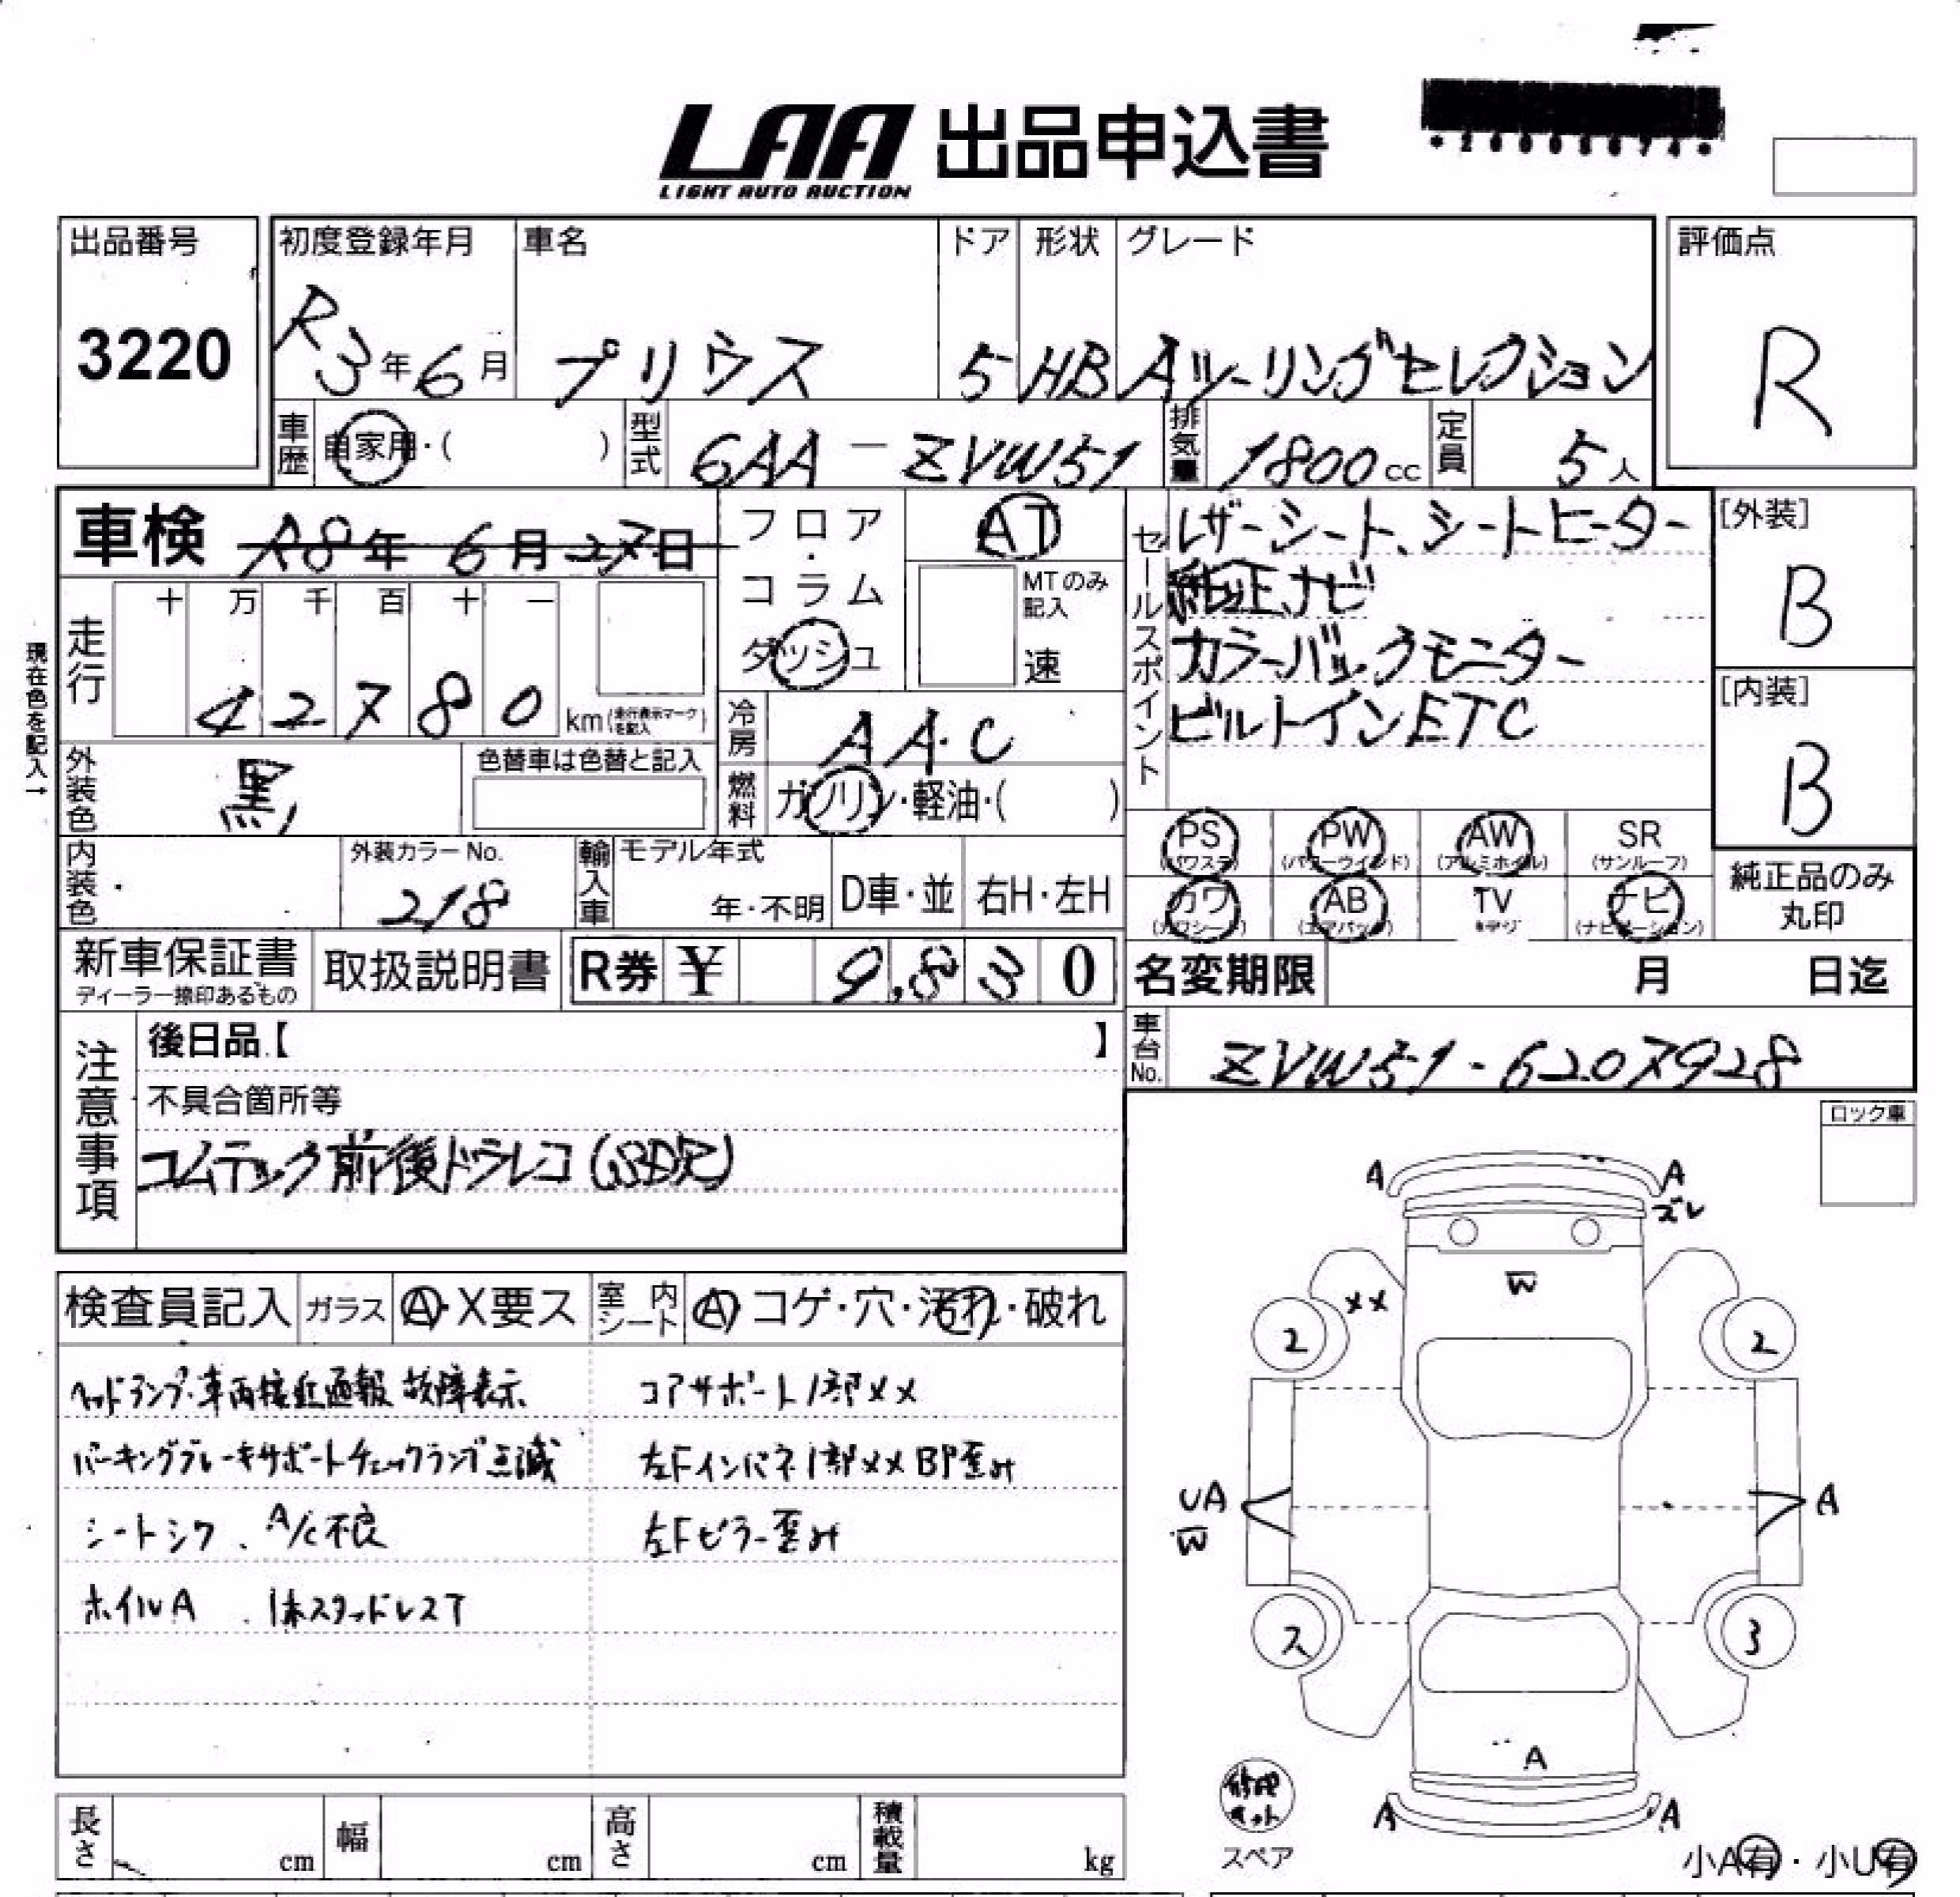 LAA 出品申込書
LIGHT AUTO AUCTION
出品番号
3220
初度登録年月
R3年6月
車名
プリウス
ドア
5
形状
HB
グレード
Aツーリングセレクション
評価点
R
車歴
自家用・( )
型式
6AA-ZVW51
排気量
1800cc
定員
5人
車検 R8年6月27日
フロア・コラム
ダッシュ
AT
MTのみ記入
速
セールスポイント
レザーシート、シートヒーター
純正ナビ
カラーバックモニター
ビルトインETC
[外装]
B
[内装]
B
現在色を記入→
走行
十 万 千 百 十 一
42780 km(走行表示マークを記入)
冷房
AA.C
燃料
ガソリン・軽油・( )
外装色
黒
色替車は色替と記入
内装色
外装カラーNo.
218
輸入車
モデル年式
年・不明
D車・並
右H・左H
PS
(パワステ)
PW
(パワーウインド)
AW
(アルミホイル)
SR
(サンルーフ)
カワ
(カワシート)
AB
(エアバック)
TV
ナビ
(ナビゲーション)
純正品のみ
丸印
新車保証書
ディーラー捺印あるもの
取扱説明書
R券 ¥ 9,830
名変期限 月 日迄
車台No.
ZVW51-6207928
注意事項
後日品【 】
不具合箇所等
コムテック前後ドラレコ(SD欠)
ロック車
検査員記入
ガラス
A・X要ス
室内シート
A コゲ・穴・汚れ・破れ
ヘッドランプ・車両接近通報 故障表示
パーキングブレーキサポートチェックランプ点滅
シートシワ、A/C不良
ホイルA、1本スタッドレスT
コアサポート1部メメ
左Fインパネ1部メメ BP歪み
左Fピラー歪み
A A
ズレ
W
××
2 2
UA
W
A
ス 3
A
A A
修理キット
スペア
小A有・小U有
長さ cm
幅 cm
高さ cm
積載量 kg